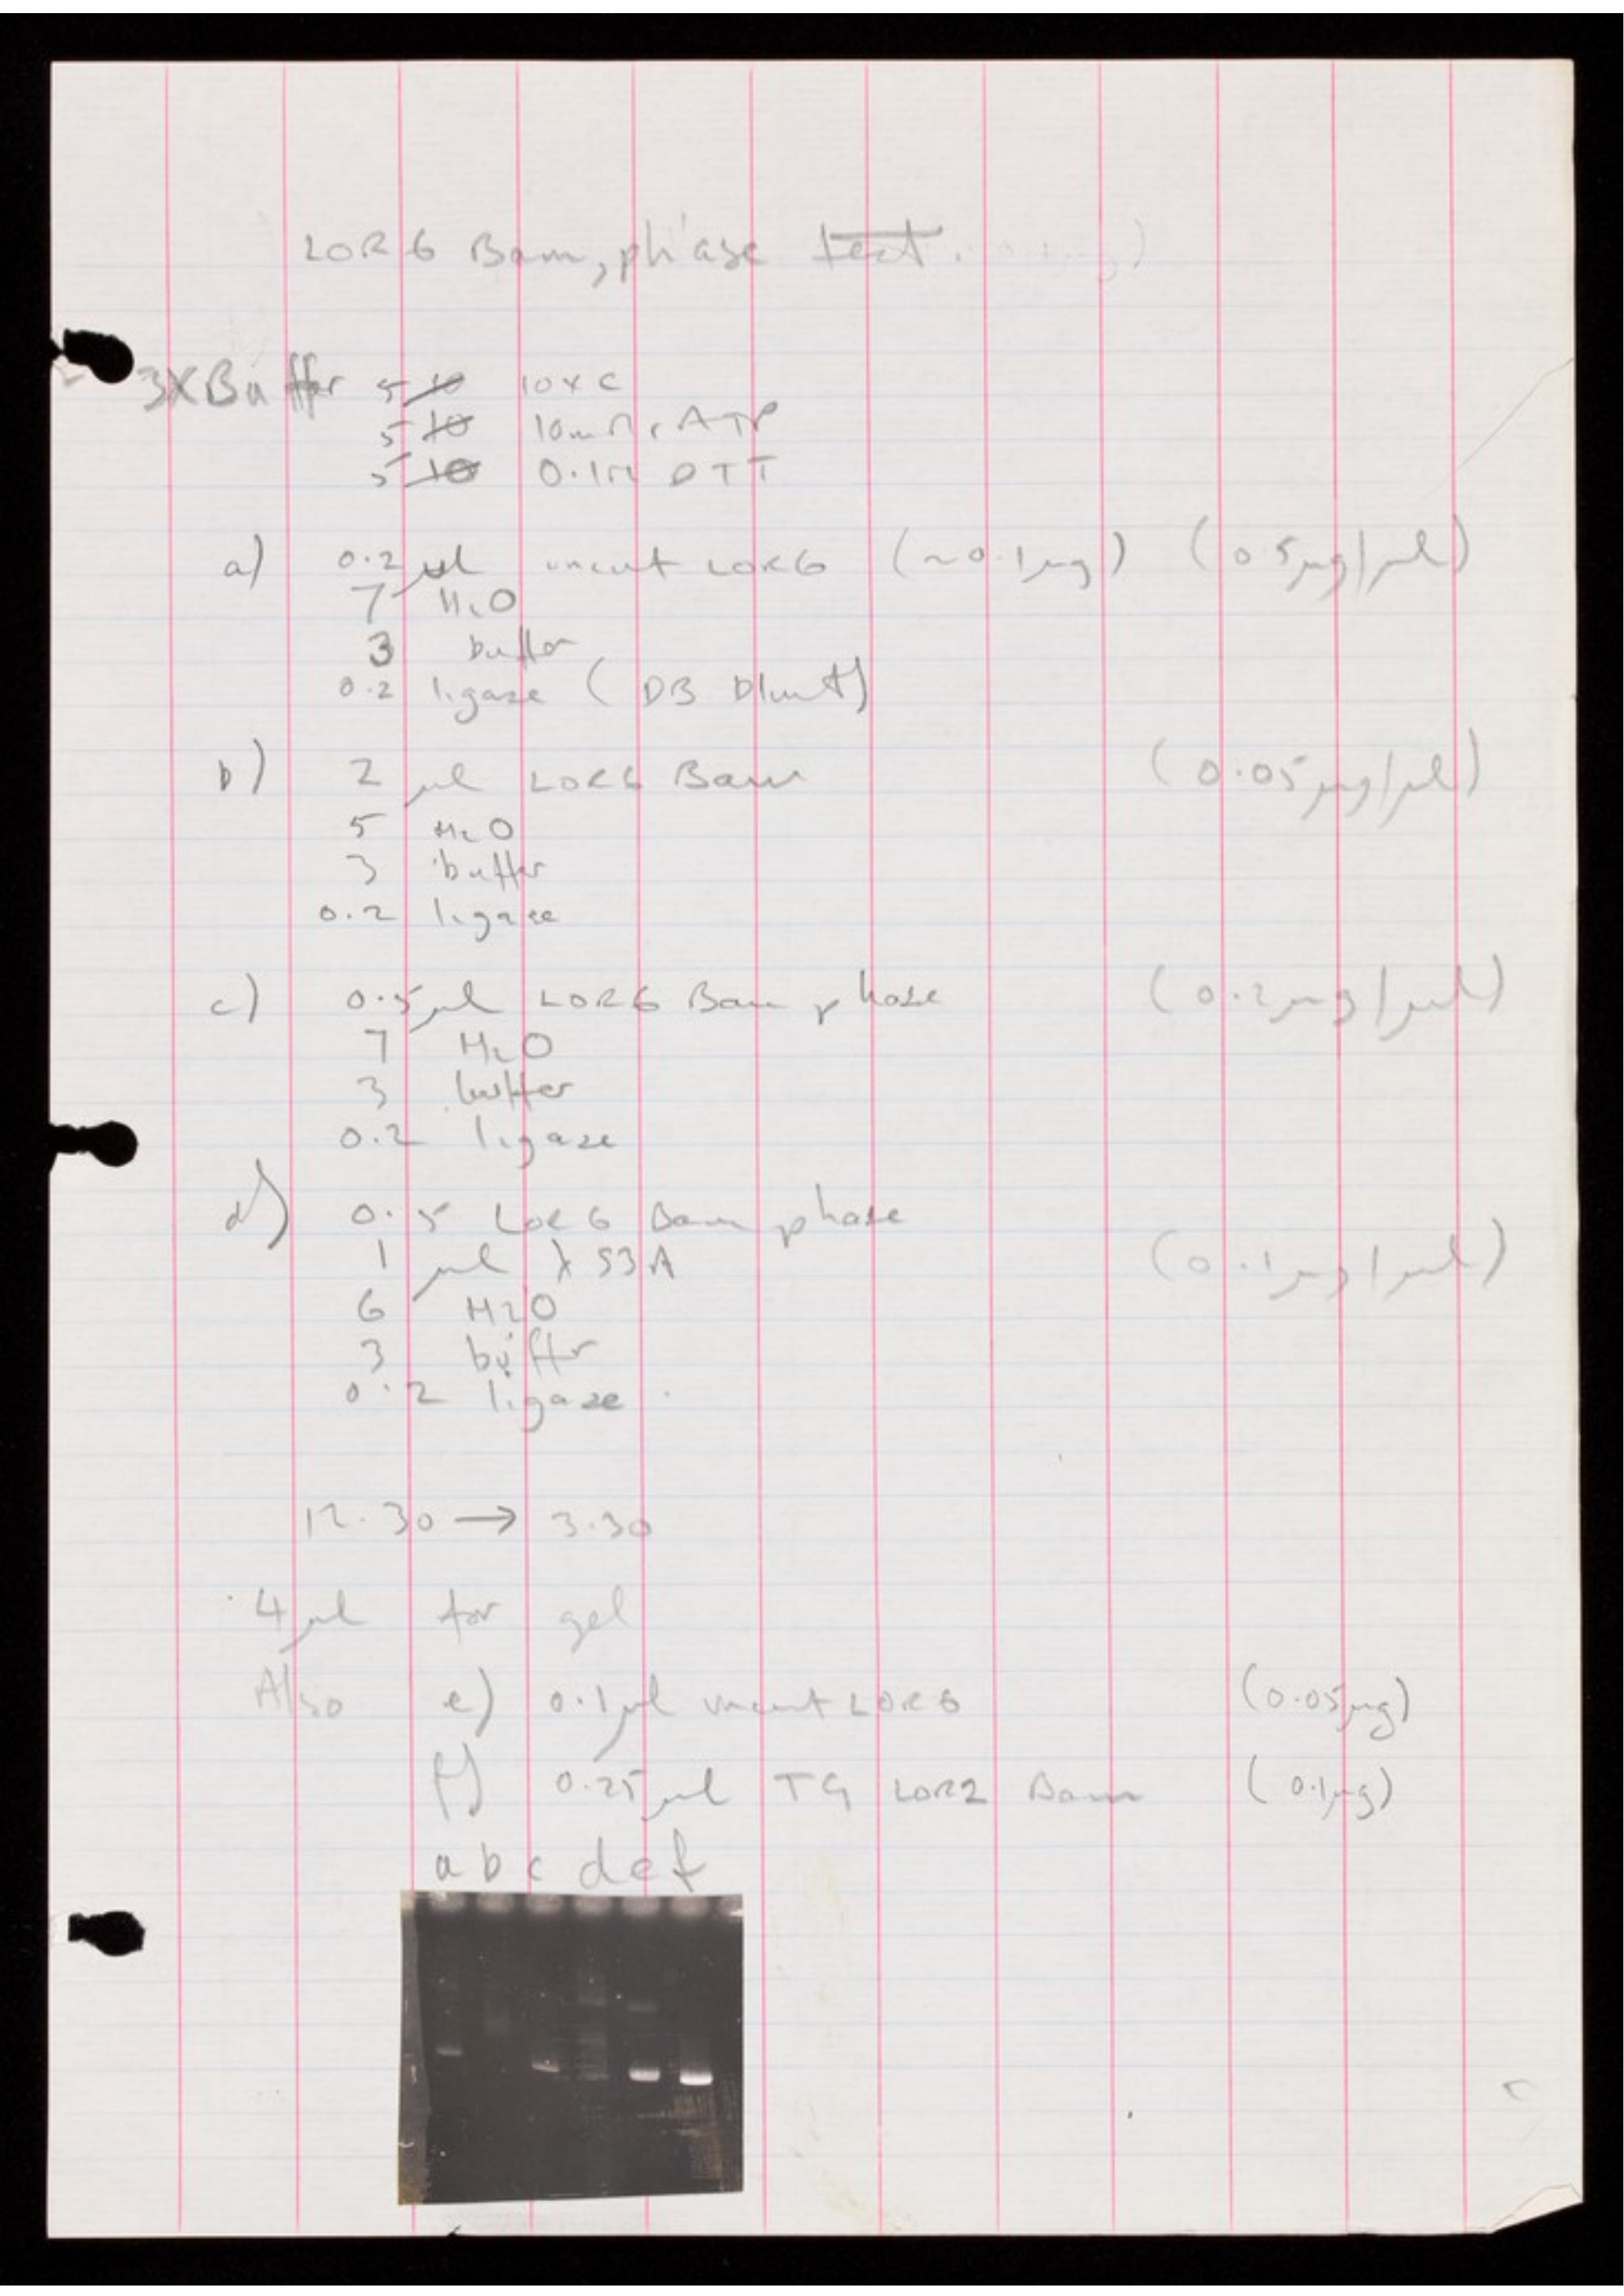 LOR6 Bam, phase test.
3XBuffer 5 10 10xC
5 10 10mM rATP
5 10 0.1M DTT
a) 0.2 µl uncut LOR6 (~0.1µg) (0.5µg/µl)
7 H2O
3 buffer
0.2 ligase (DB blunt)
b) 2 µl LOR6 Bam (0.05µg/µl)
5 H2O
3 buffer
0.2 ligase
c) 0.5µl LOR6 Bam phase (0.2µg/µl)
7 H2O
3 buffer
0.2 ligase
d) 0.5 LOR6 Bam phase
1 µl λ S3A (0.1µg/µl)
6 H2O
3 buffr
0.2 ligase.
12.30 → 3.30
4µl for gel
Also e) 0.1µl uncut LOR6 (0.05µg)
f) 0.25µl TG LOR2 Bam (0.1µg)
a b c d e f